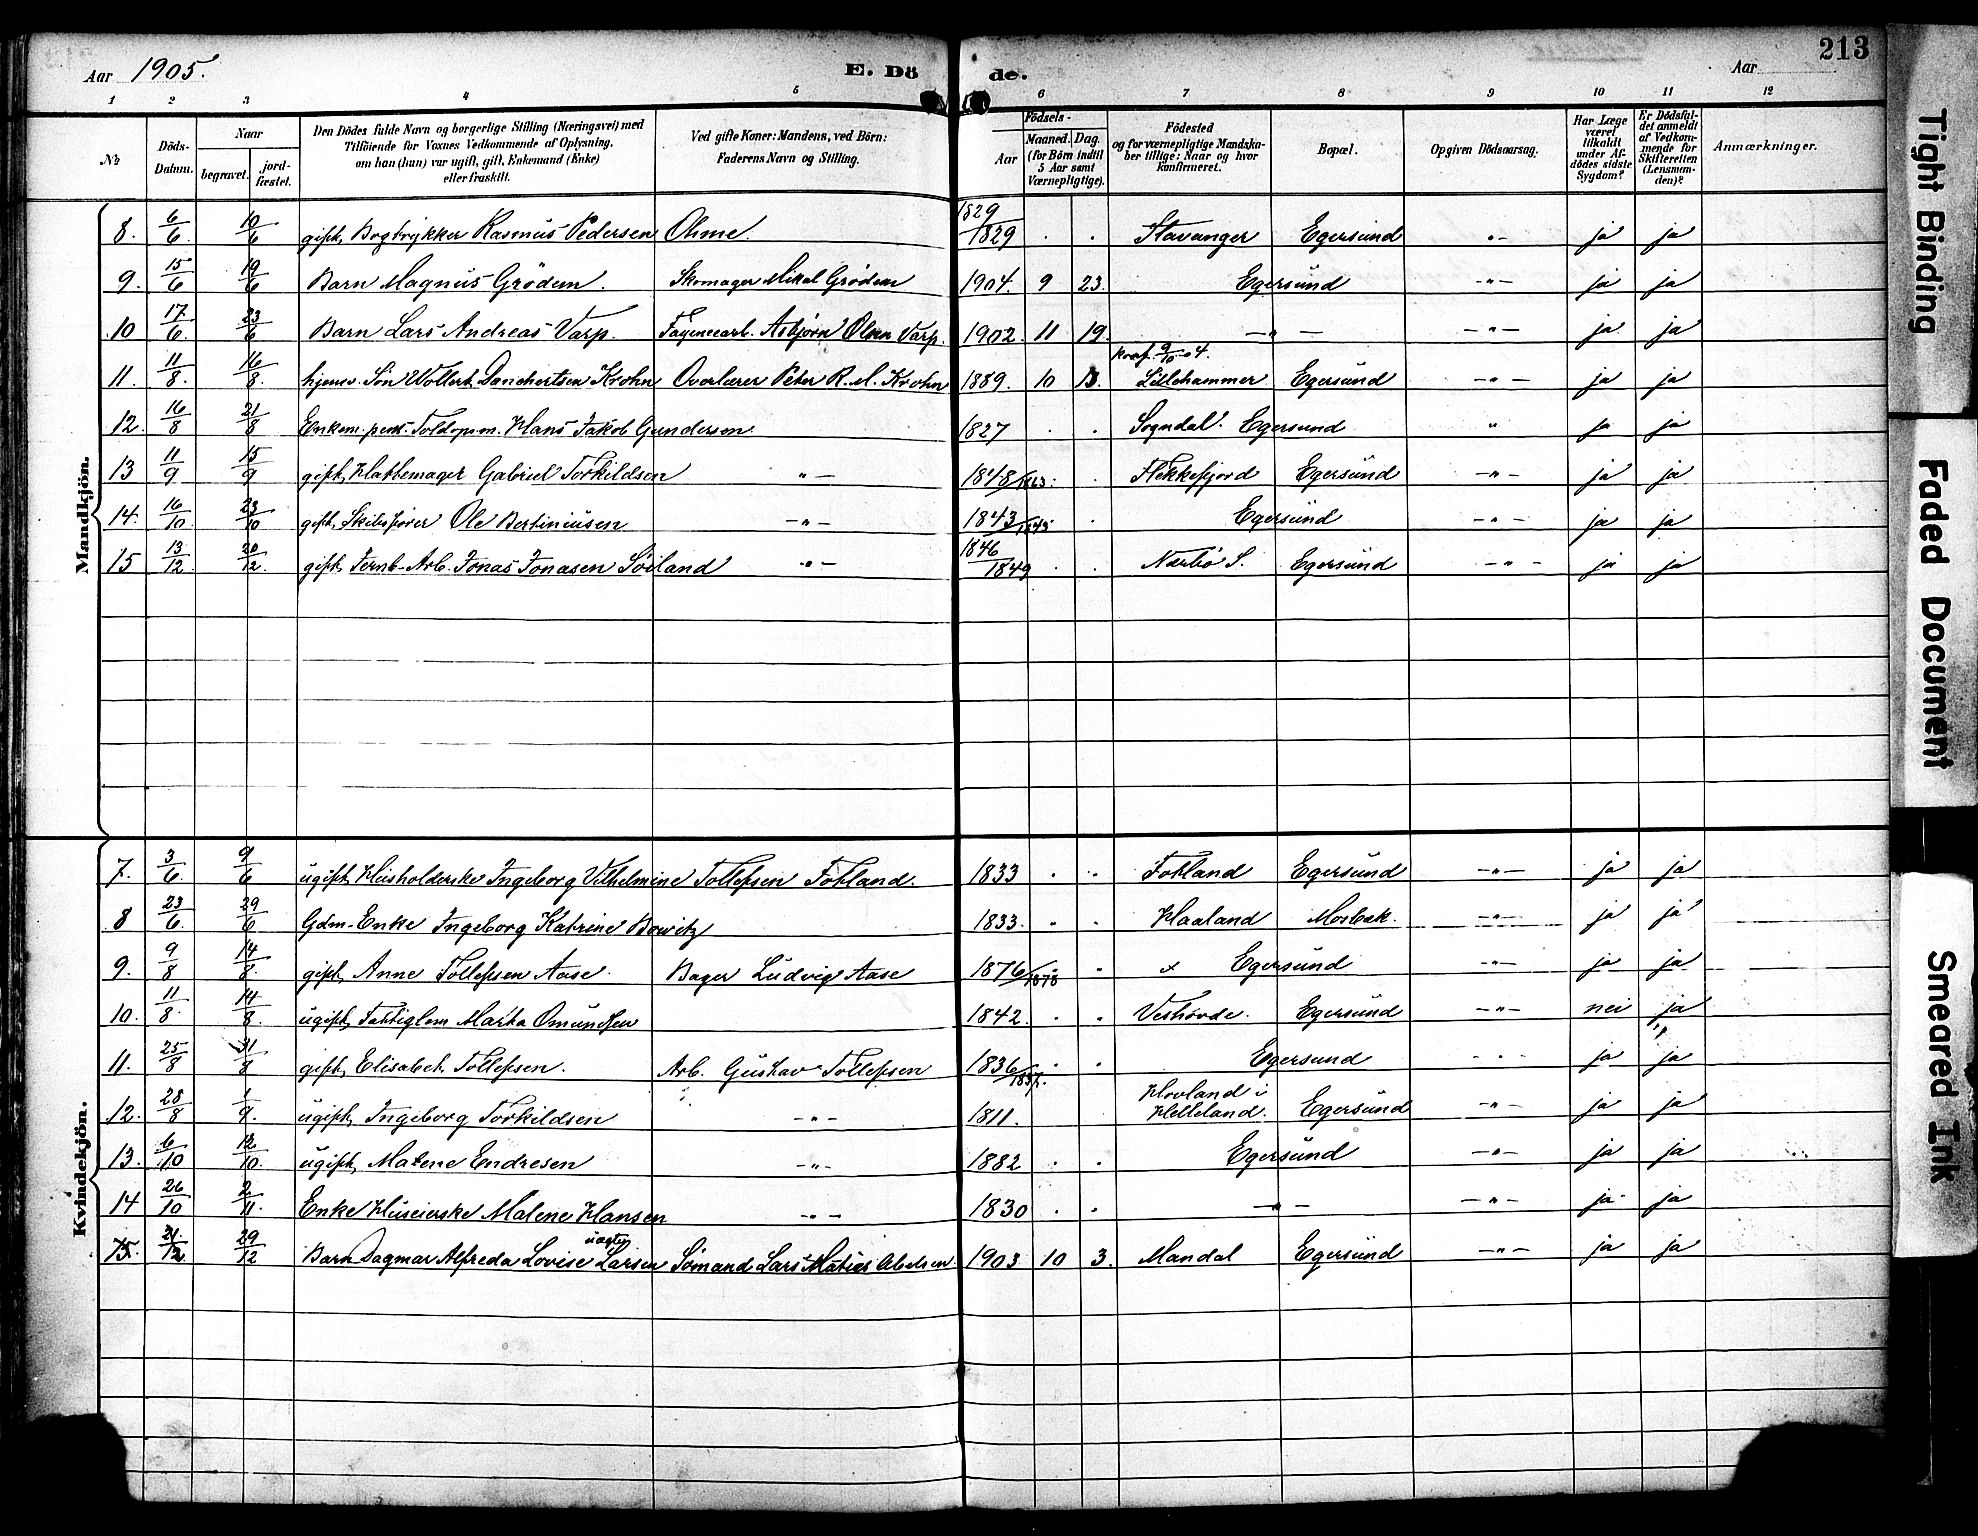 Aar 1905. E. Döde. Aar 213
1 2 3 4 5 6 7 8 9 10 11 12
№ Döds-Datum. Naar begravet. jordfæstet. Den Dödes fulde Navn og borgerlige Stilling (Næringsvei) med Tilföiende for Voxnes Vedkommende af Oplysning, om han (hun) var ugift, gift, Enkemand (Enke) eller fraskilt. Ved gifte Koner: Mandens, ved Börn: Faderens Navn og Stilling. Födsels- Aar Maaned. Dag. (for Börn indtil 5 Aar samt Værnepligtige). Födested og for værnepligtige Mandskaber tillige: Naar og hvor konfirmeret. Bopæl. Opgiven Dödsaarsag. Har Læge været tilkaldt under Afdödes sidste Sygdom? Er Dödsfaldet anmeldt af Vedkommende for Skifteretten (Lensmanden)? Anmærkninger.
Mandkjön.
8. 6/6 10/6 gift, Bogtrykker Rasmus Pedersen Ohme. 1829/1829 . . Stavanger Egersund -"- ja ja
9. 15/6 19/6 Barn Magnus Grödem. Skomager Mikal Grödem 1904. 9 23. Egersund -"- ja ja
10 17/6 23/6 Barn Lars Andreas Varp. Fayencearb. Asbjørn Olsen Varp. 1902. 11 19. -"- -"- ja ja
11. 11/8. 16/8. hjemv. Søn Wollert Danchertsen Krohn Overlærer Peter R. M. Krohn 1889. 10 13. konf. 9/10 04. Lillehammer Egersund -"- ja ja
12. 16/8 21/8 Enkem. pens. Toldopsm. Hans Jakob Gundersen. 1827 . . Sogndal. Egersund " ja ja
13 11/9 15/9 gift, Hattemager Gabriel Torkildsen -"- 1848/1863. Flekkefjord Egersund -"- ja ja
14. 16/10 23/10 gift, Skibsfører Ole Bertiniusen -"- 1843/1845 . Egersund -"- ja ja
15 13/12 20/12. gift, Jernb-Arb. Jonas Jonasen Söiland -"- 1846/1849 . . Nærbö S. Egersund -"- ja ja
Kvindekjön.
7. 3/6. 9/6 ugift, Husholderske Ingeborg Vilhelmine Tollefsen Fotland. 1833 . . Fotland Egersund -"- ja ja
8 23/6. 29/6 Gdm-Enke Ingeborg Katrine Bowitz 1833. . . Haaland Mosbæk. -"- ja ja
9. 9/8 14/8. gift, Anne Tollefsen Aase. Bager Ludvig Aase 1876/1878 . Egersund -"- ja ja
10. 11/8 14/8. ugift, Fattiglem Marta Omundsen 1842. . . Egersund -"- nei ja
11. 25/8 31/8 gift, Elisabet Tollefsen. Arb. Gustav Tollefsen 1836/1837. . Egersund -"- ja ja
12. 28/8 1/9. ugift, Ingeborg Torkildsen -"- 1811. Hovland i Helleland. Egersund -"- ja ja
13. 6/10 12/10. ugift, Malene Endresen -"- 1882 . . Egersund -"- ja ja
14 26/10 2/11. Enke Huseierske Malene Hansen -"- 1830 . . -"- -"- ja ja
15. 21/12 29/12 Barn Dagmar Alfreda Lovise uægte Larsen Sømand Lars Matias Abelsen. 1903 10 3. Mandal Egersund -"- ja ja
Tight Binding
Faded Document
Smeared Ink